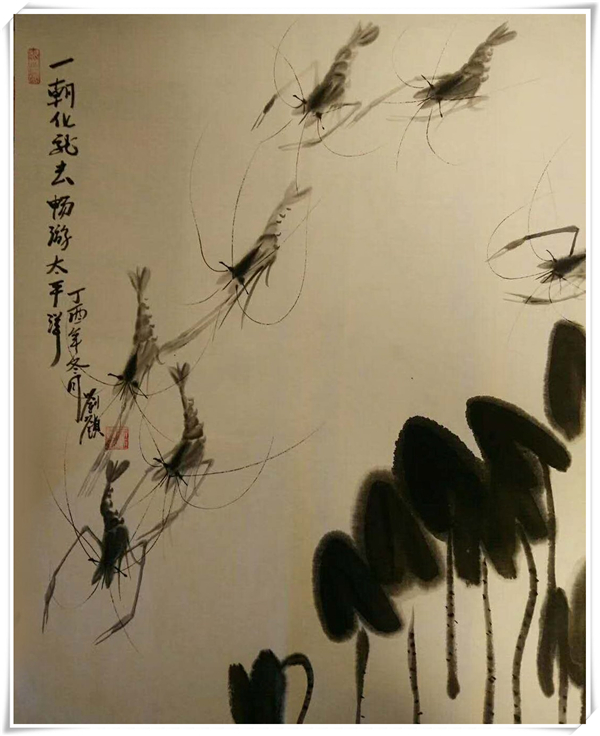 一朝化龙去畅游太平洋
丁酉年冬月
刘